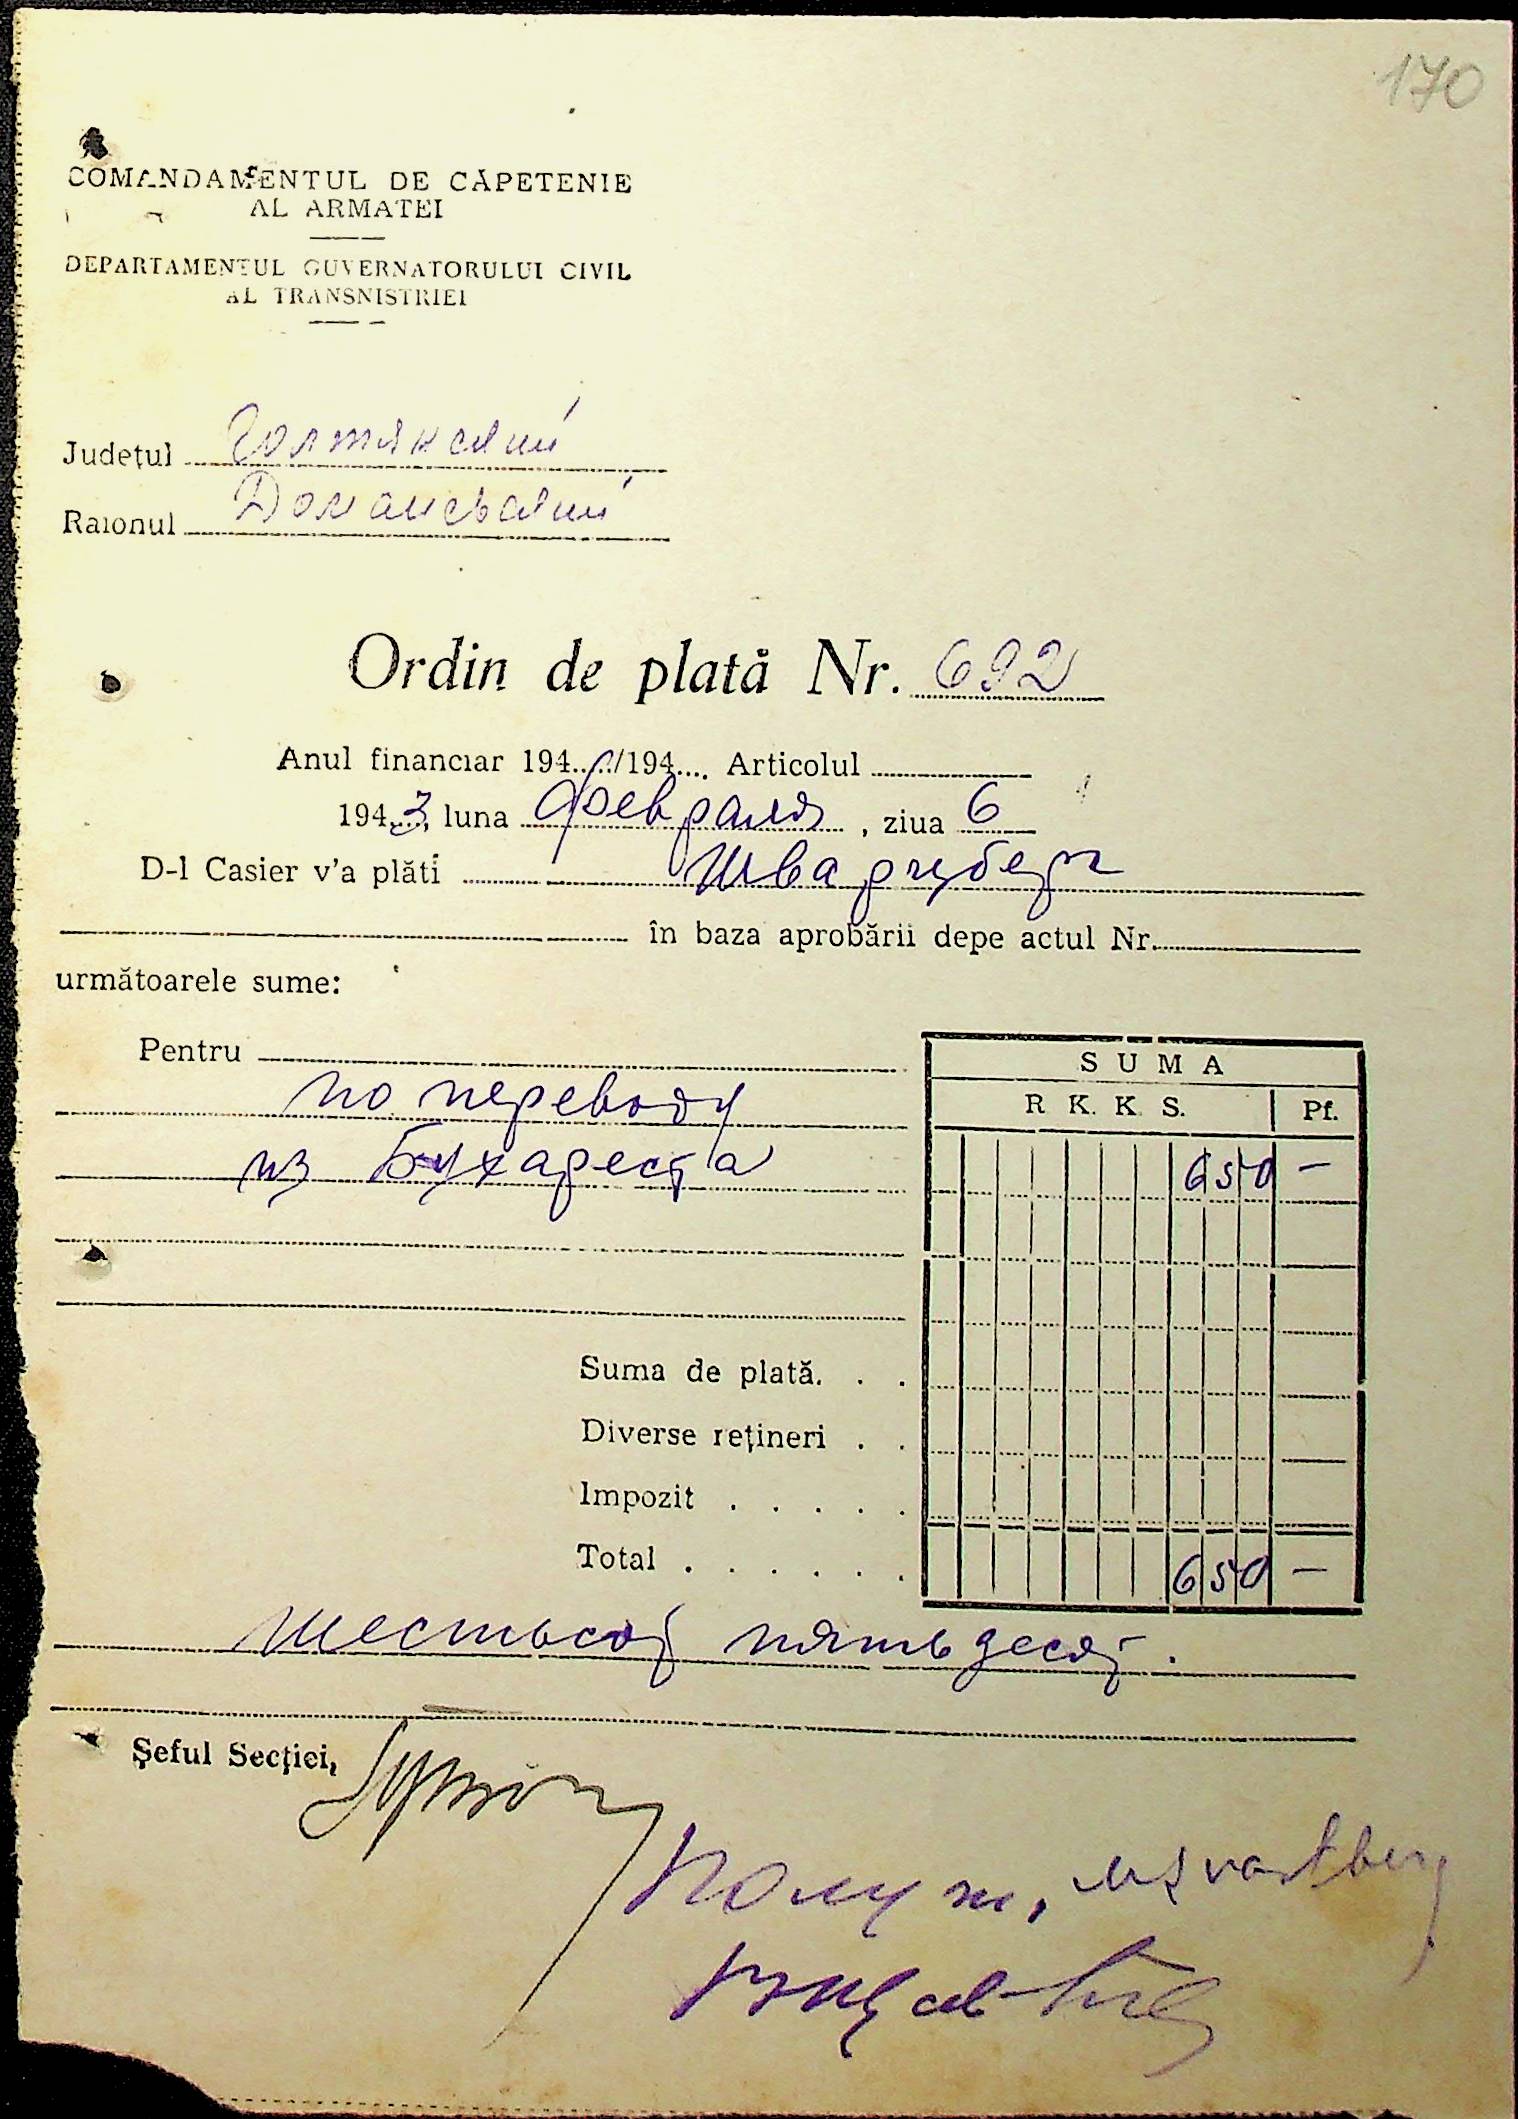 170
COMANDAMENTUL DE CĂPETENIE
AL ARMATEI
DEPARTAMENTUL GUVERNATORULUI CIVIL
AL TRANSNISTRIEI
Județul Голтянский
Raionul Доманевский
Ordin de plată Nr. 692
Anul financiar 194..../194.... Articolul
1943, luna Февраля, ziua 6
D-l Casier v'a plăti Шварцберг
în baza aprobării depe actul Nr.
următoarele sume:
Pentru
по переводу
из Бухареста
SUMA
R K. K S. Pf.
650 —
Suma de plată. . .
Diverse rețineri . .
Impozit . . . . .
Total . . . . . . 650 —
шестьсот пятьдесят.
Șeful Secției,